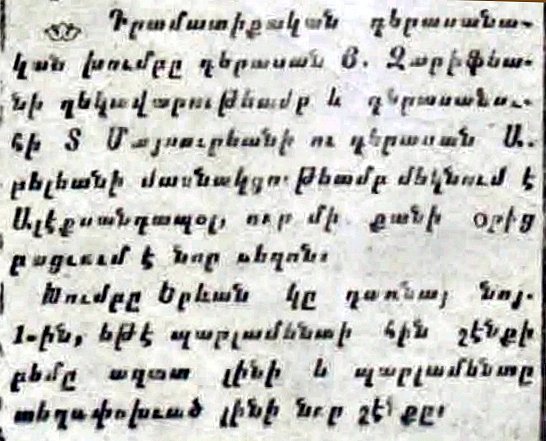 Դրամատիքական դերասանա-
կան խումբը դերասան Յ. Զարիֆեա-
նի ղեկավարութեամբ և դերասանու-
հի Տ Մայսուրեանի ու դերասան Ա.
բելեանի մասնակցութեամբ մեկնում է
Ալէքսանդապօլ, ուր մի քանի օրից
բացւում է նոր սեզոն։
Խումբը Երևան կը դառնայ նոյ.
1-ին, եթէ պարլամենտի հին շէնքի
բեմը ազատ լինի և պարլամենտը
տեղափոխւած լինի նոր շէնքը։